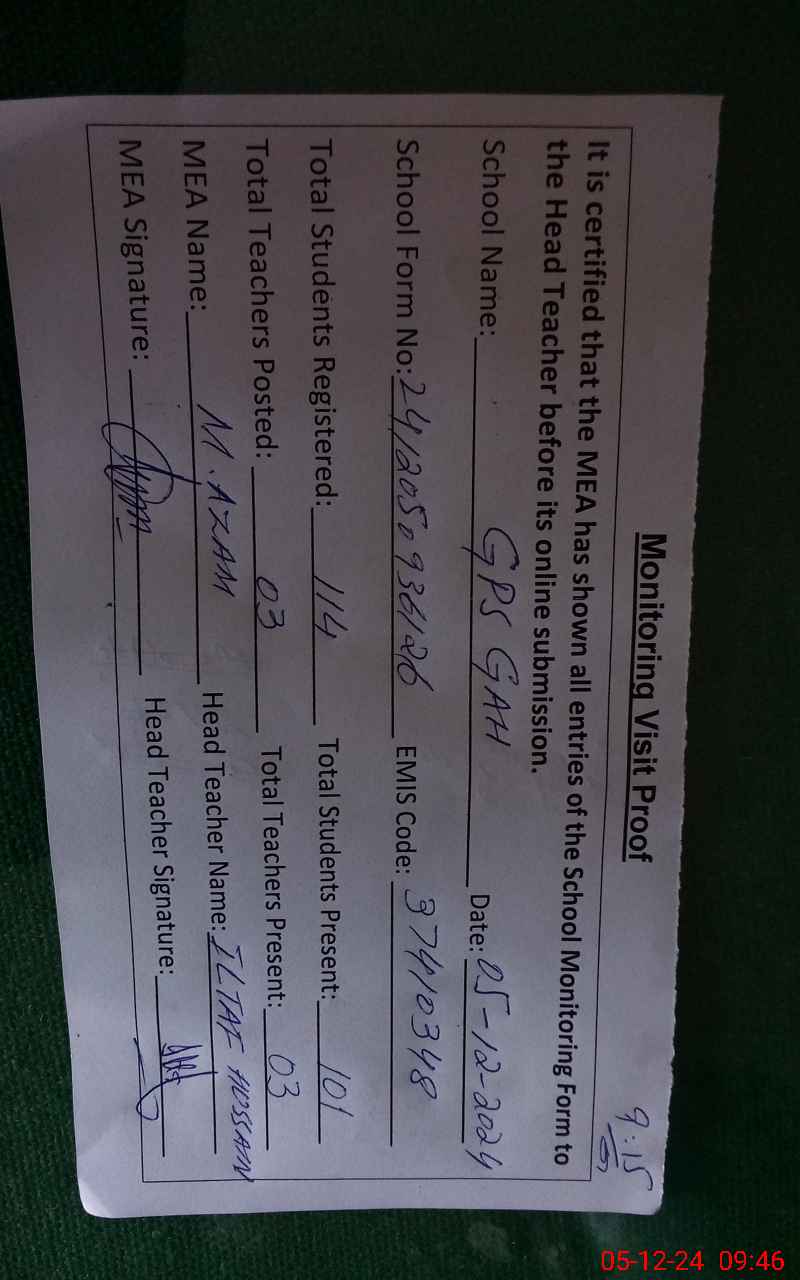 9:15
Monitoring Visit Proof
It is certified that the MEA has shown all entries of the School Monitoring Form to
the Head Teacher before its online submission.
School Name: GPS GAH Date: 05-12-2024
School Form No: 2412050936126 EMIS Code: 37410348
Total Students Registered: 114 Total Students Present: 101
Total Teachers Posted: 03 Total Teachers Present: 03
MEA Name: M. AZAM Head Teacher Name: ILTAF HUSSAIN
MEA Signature: Head Teacher Signature:
05-12-24 09:46